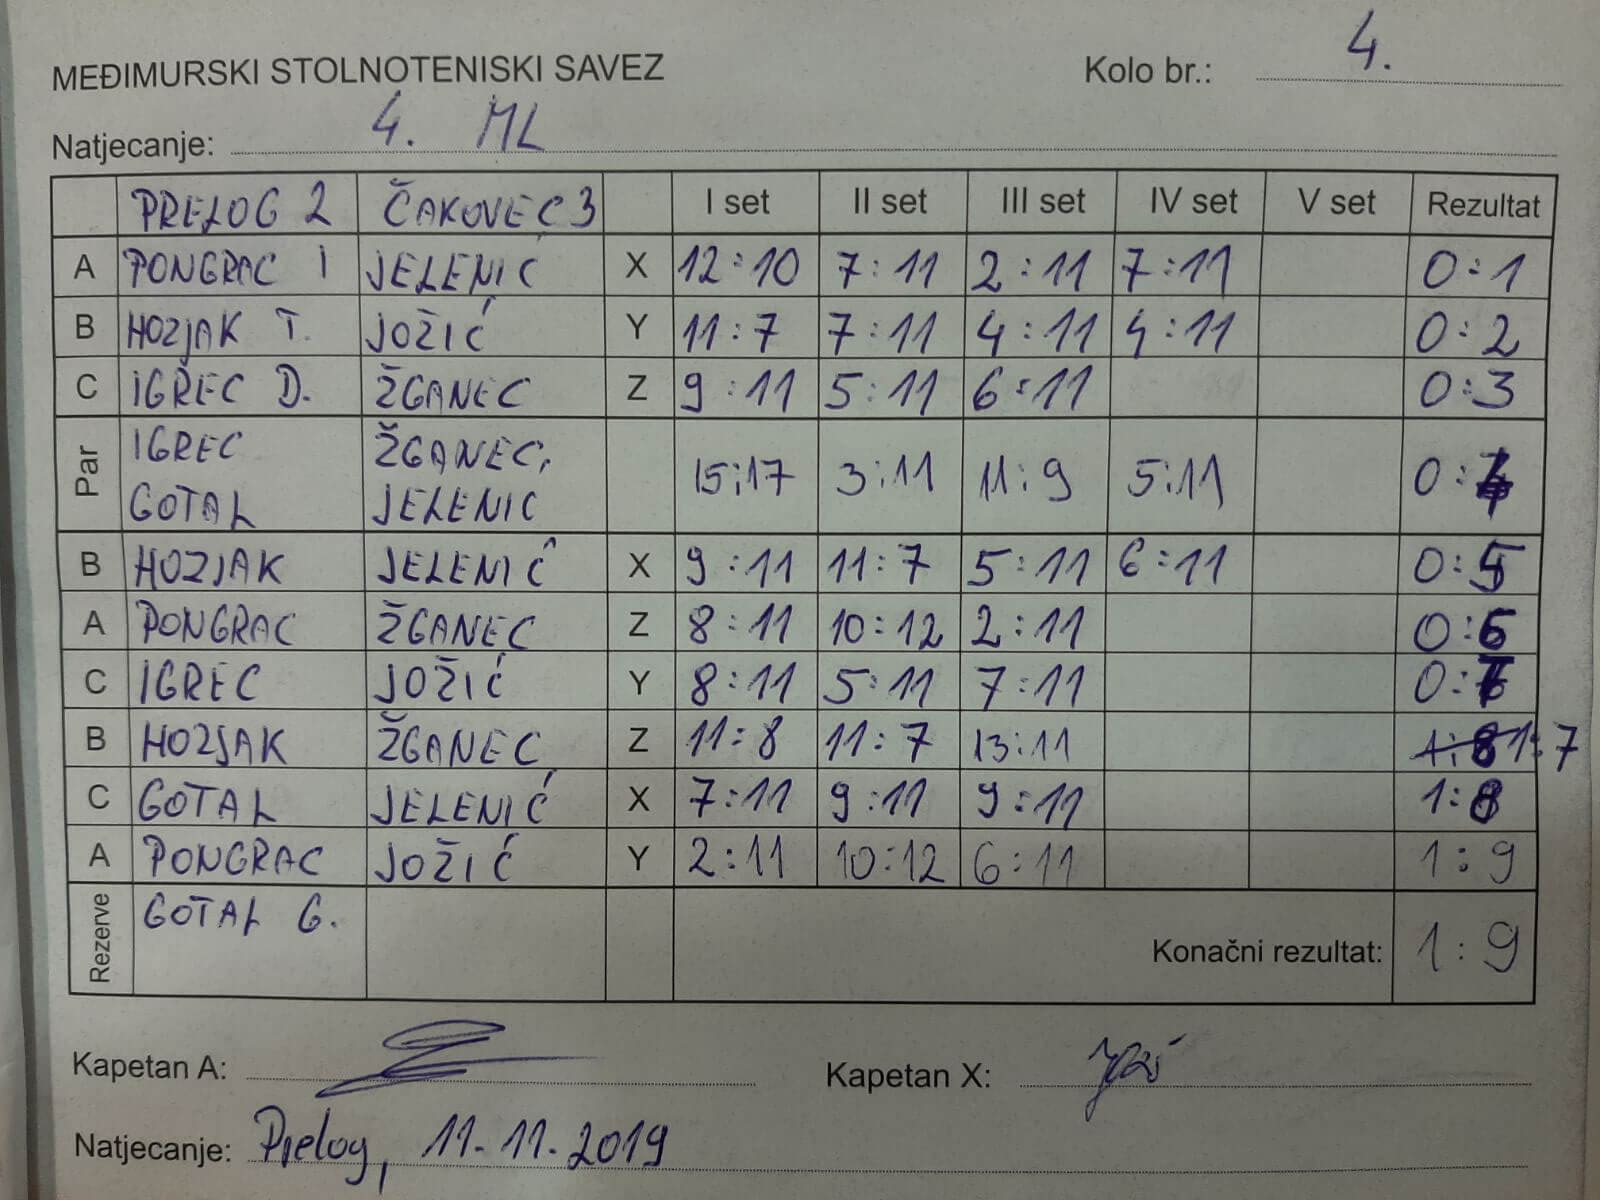 MEĐIMURSKI STOLNOTENISKI SAVEZ Kolo br.: 4.
Natjecanje: 4. ML
PRELOG 2 ČAKOVEC 3 I set II set III set IV set V set Rezultat
A PONGRAC I JELENIĆ X 12:10 7:11 2:11 7:11 0:1
B HOZJAK T. JOŽIĆ Y 11:7 7:11 4:11 4:11 0:2
C IGREC D. ŽGANEC Z 9:11 5:11 6:11 0:3
Par IGREC ŽGANEC, 15:17 3:11 11:9 5:11 0:4
GOTAL JELENIC
B HOZJAK JELENIĆ X 9:11 11:7 5:11 6:11 0:5
A PONGRAC ŽGANEC Z 8:11 10:12 2:11 0:6
C IGREC JOŽIĆ Y 8:11 5:11 7:11 0:7
B HOZJAK ŽGANEC Z 11:8 11:7 13:11 1:8 1:7
C GOTAL JELENIĆ X 7:11 9:11 9:11 1:8
A PONGRAC JOŽIĆ Y 2:11 10:12 6:11 1:9
Rezerve GOTAL G. Konačni rezultat: 1:9
Kapetan A: Kapetan X:
Natjecanje: Prelog, 11.11.2019